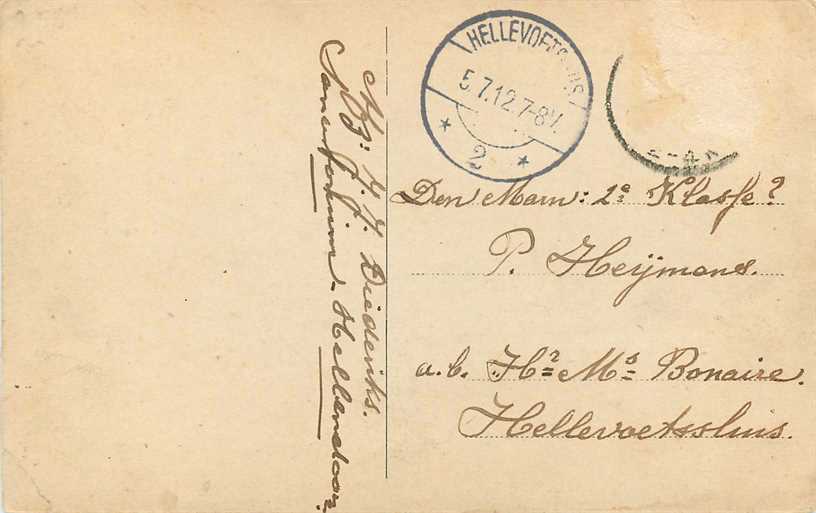 HELLEVOETSLUIS
5.7.12.7-8V.
* 2 *
Den Marn: 1e Klasse?
P. Heijmans.
a.b. Hr Ms Bonaire.
Hellevoetssluis.
Afz: H. J. Diederiks.
Sanatorium - Hellendoorn